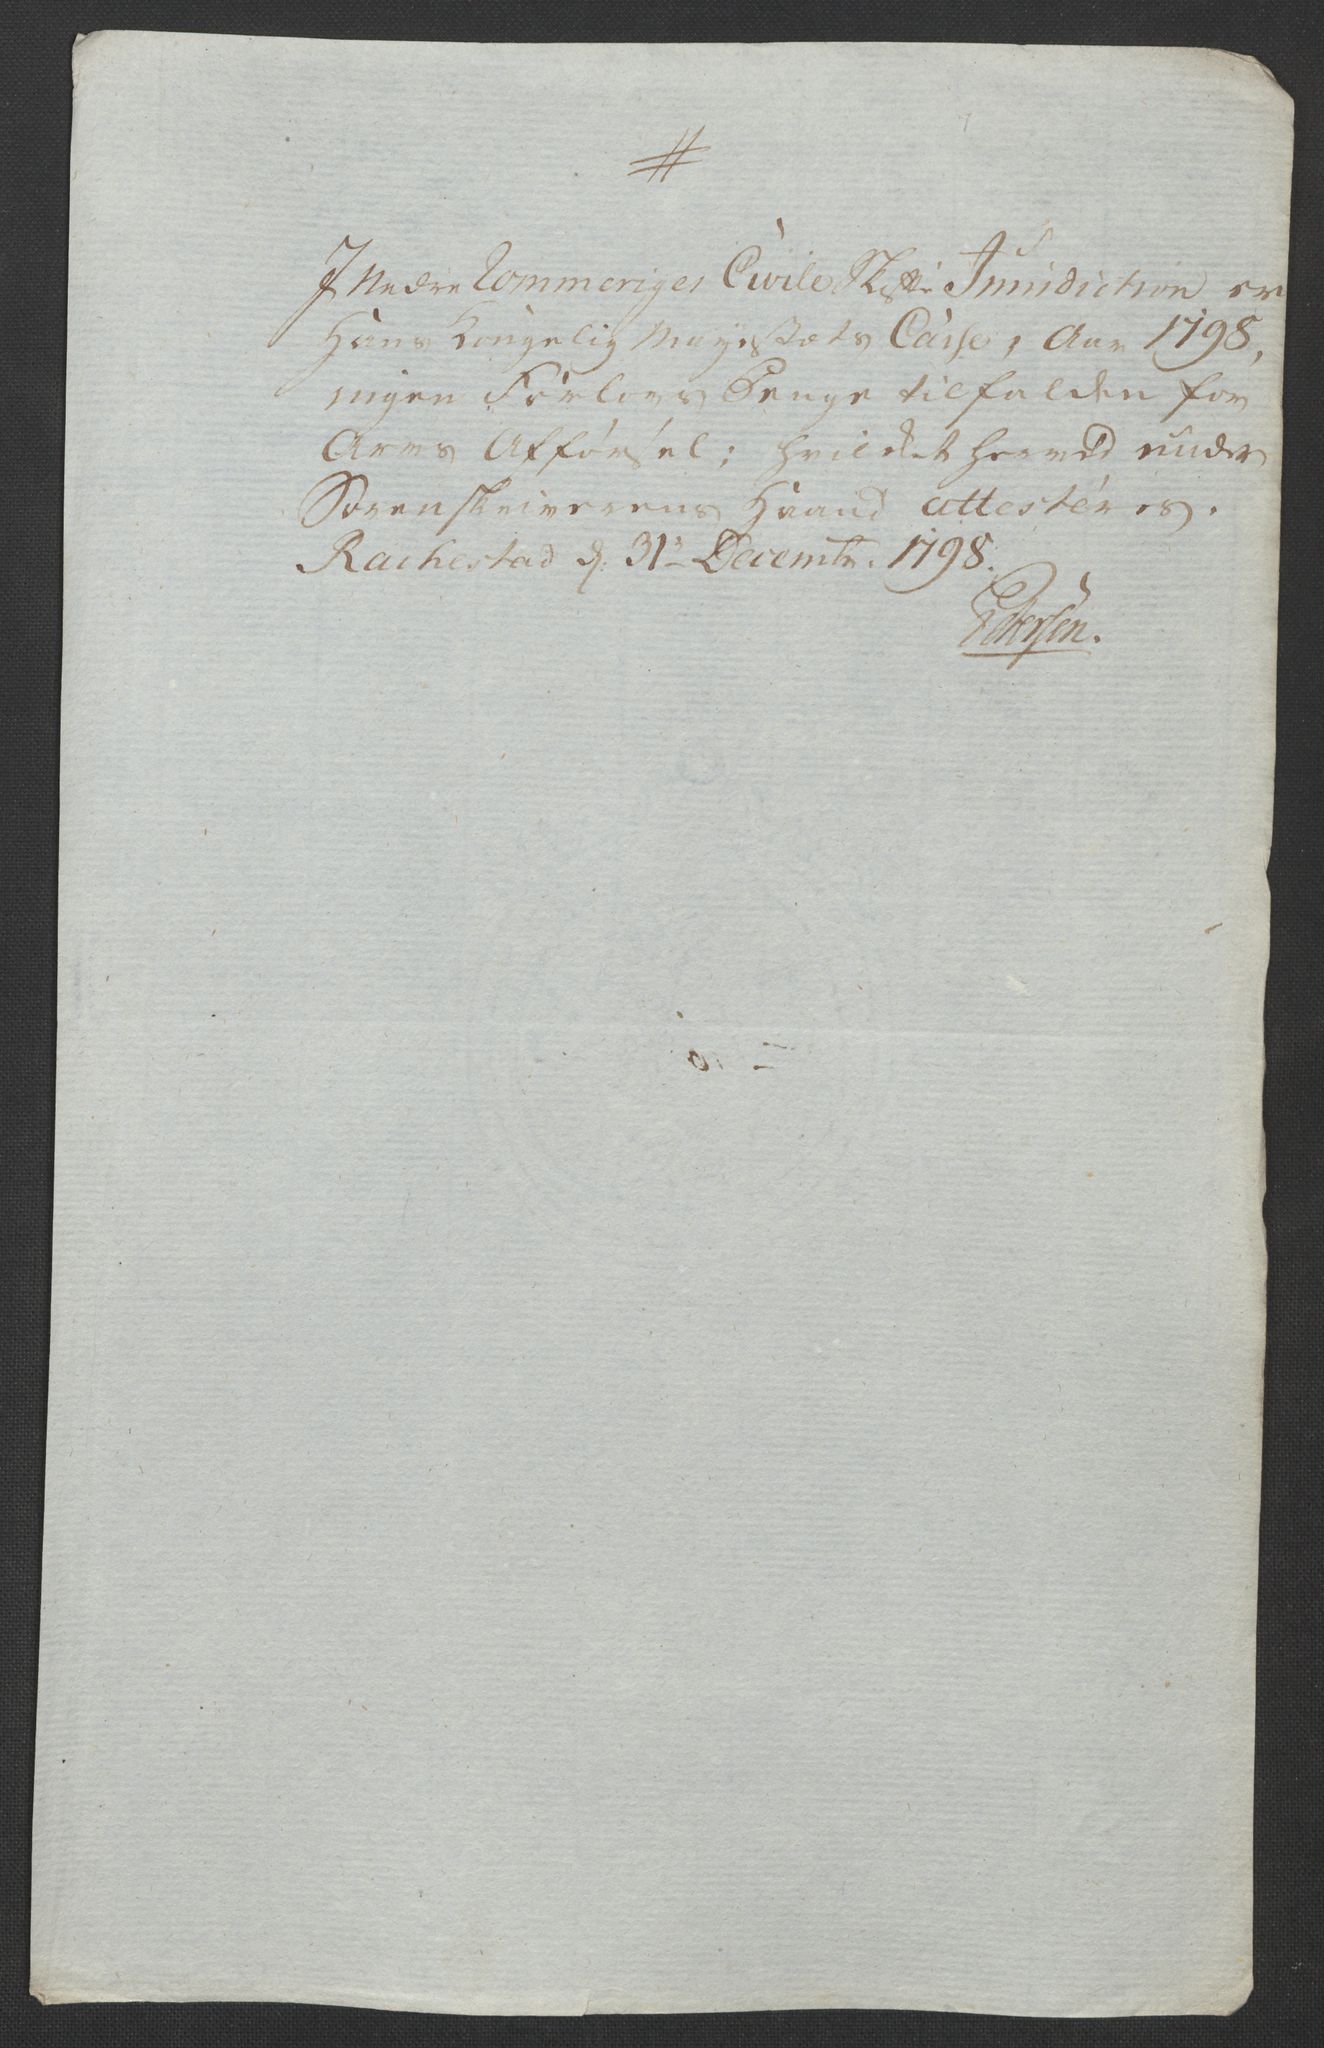 #
I Nedre Rommeriges Civile Skifte Jurisdiction er
Hans Kongelig Mayestæts Casse, Aar 1798,
ingen Forlovs Penge tilfalden for
Arvs Afførsel; hvilket herved under
Sorenskriverens Haand attesteres.
Rachestad d. 31te Decembr. 1798.
Petersen.